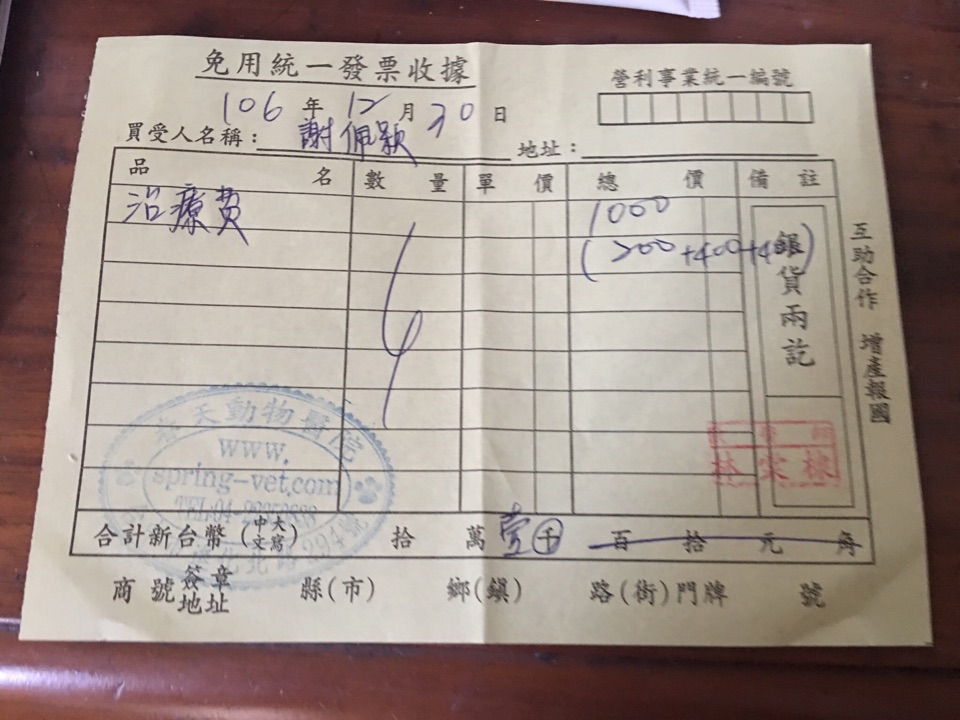 免用統一發票收據
營利事業統一編號
106年12月30日
買受人名稱：謝佩穎 地址：
品名 數量 單價 總價 備註
治療費 1000
(200+400+400)
銀貨兩訖
互助合作 增產報國
春天動物醫院
www.
spring-vet.com
合計新台幣(中文大寫) 拾 萬壹千 百 拾 元 角
商號簽章地址 縣(市) 鄉(鎮) 路(街)門牌 號